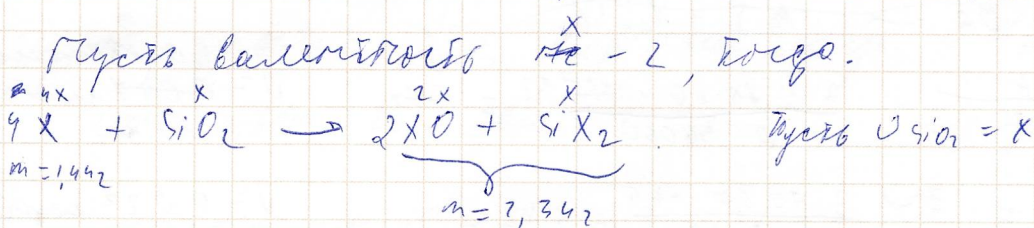 Пусть валентность X - 2, тогда.
4x x 2x x
4X + SiO2 → 2XO + SiX2 Пусть υ SiO2 = x
m = 1,44г
m = 2,34г